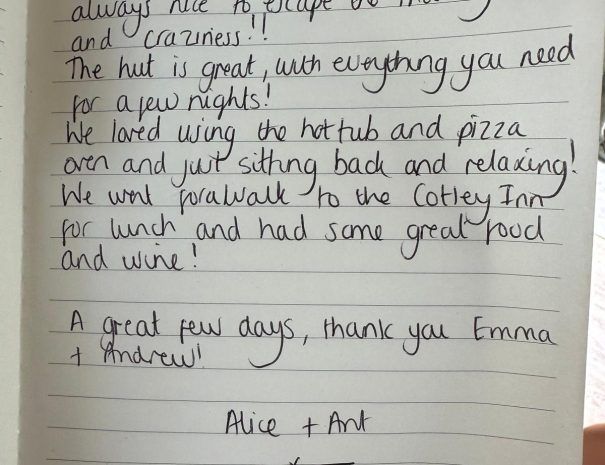 always nice to escape the
and craziness!!
The hut is great, with everything you need
for a few nights!
We loved using the hot tub and pizza
oven and just sitting back and relaxing!
We went for a walk to the Cotley Inn
for lunch and had some great food
and wine!
A great few days, thank you Emma
+ Andrew!
Alice + Ant